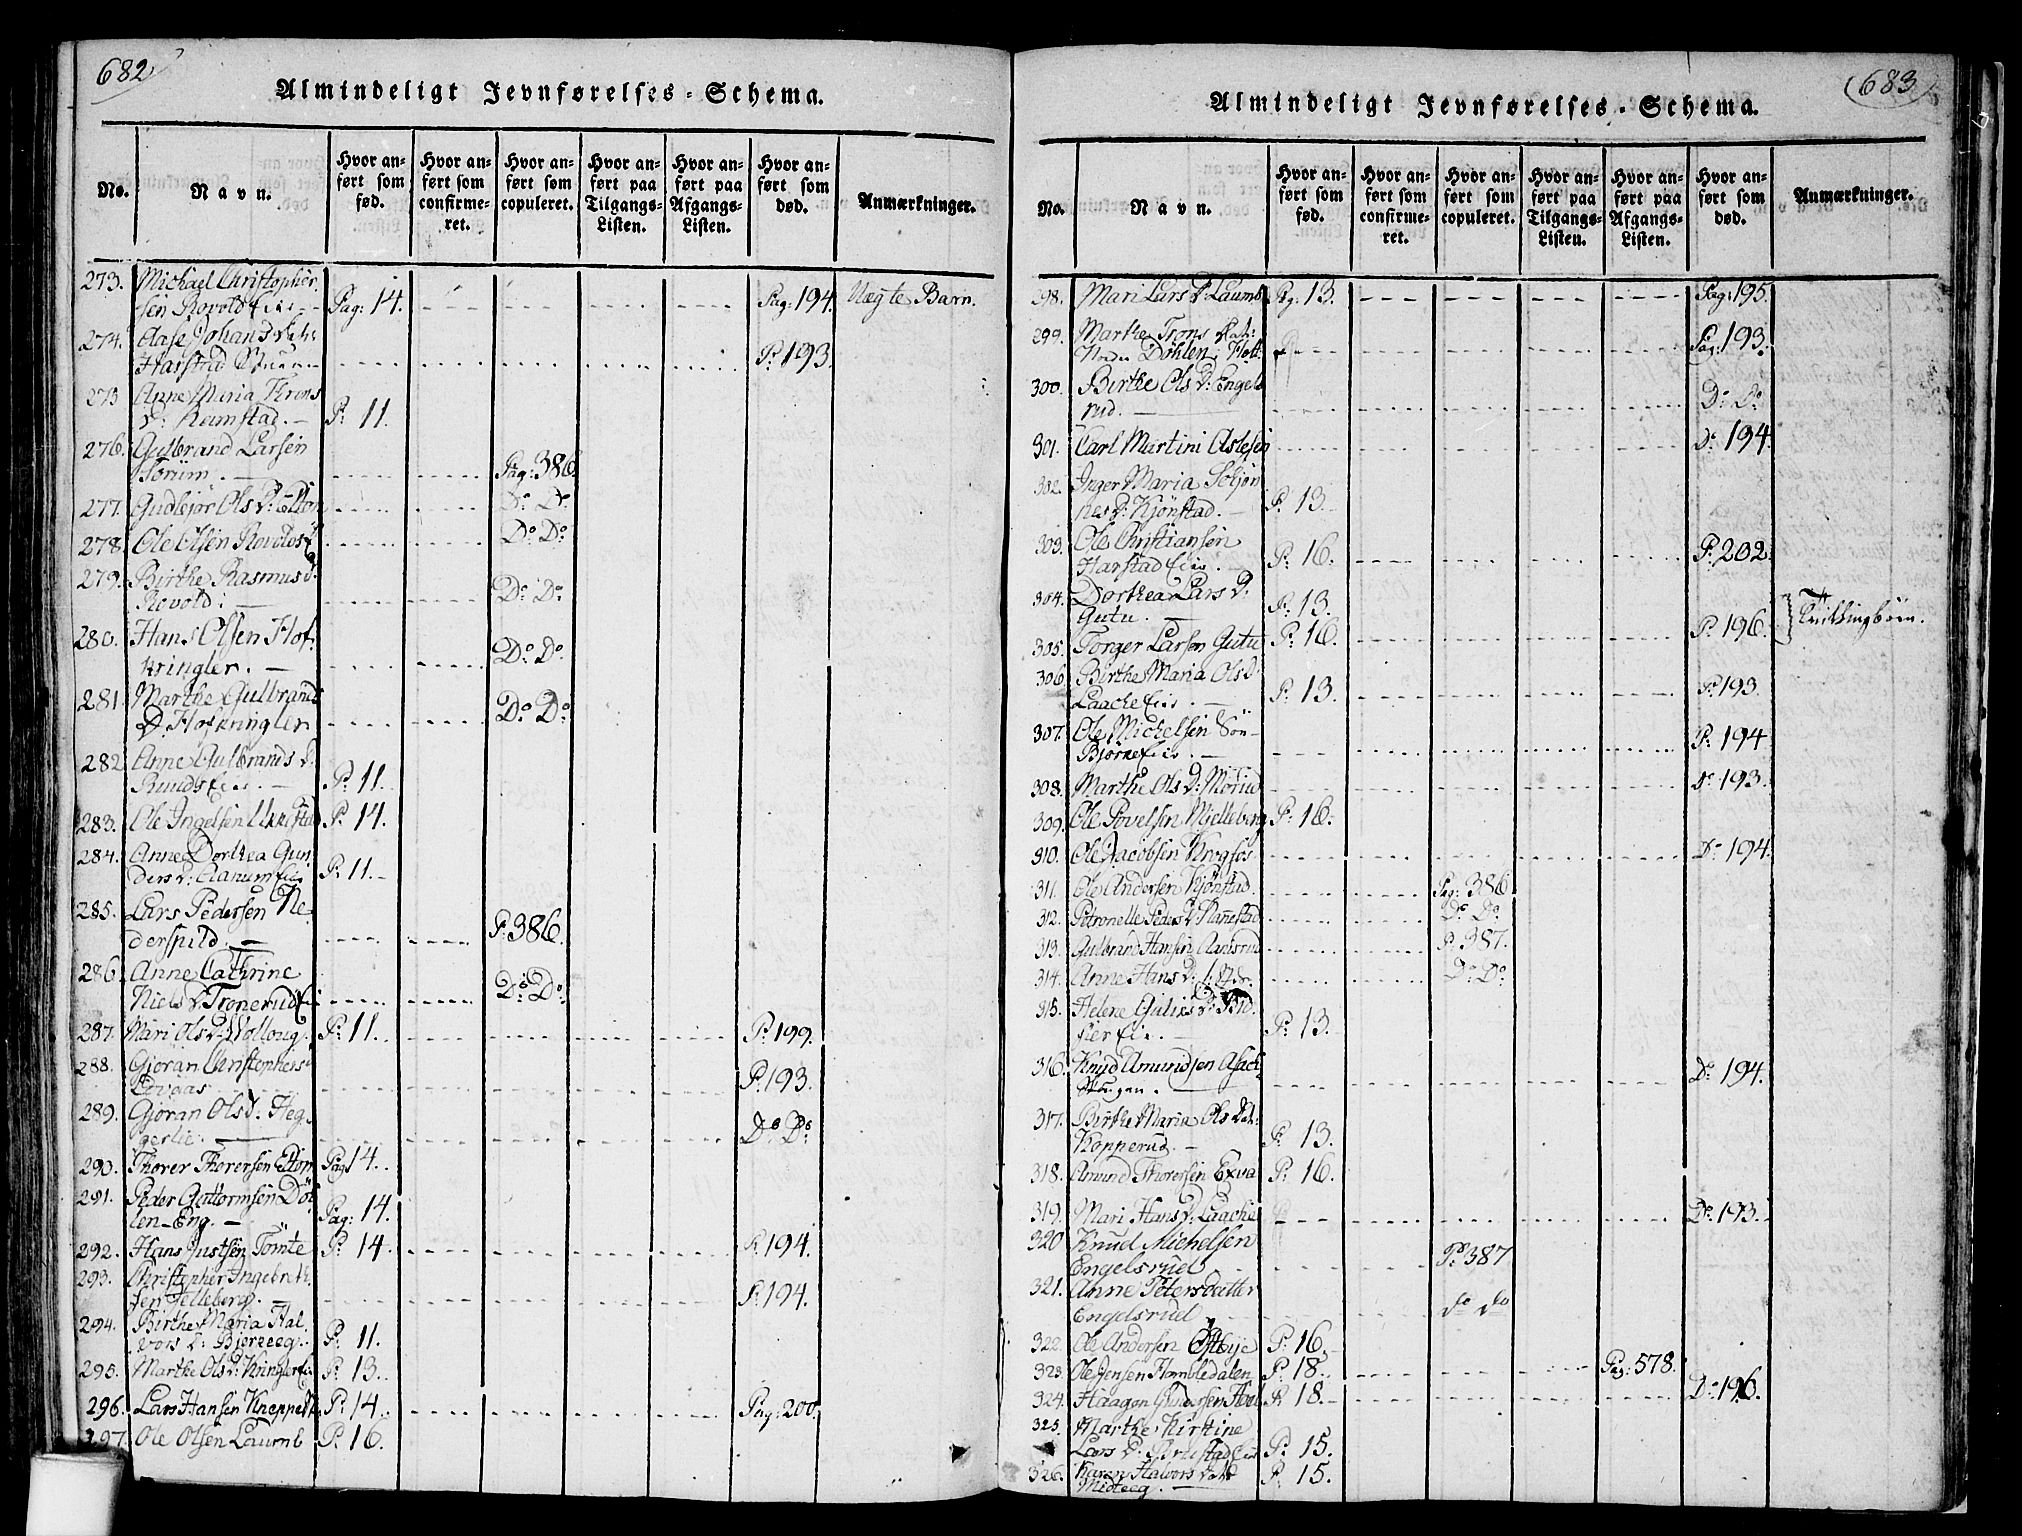 682
Almindeligt Jevnførelses-Schema.
No.
Navn.
Hvor anført som fød.
Hvor anført som confirmeret.
Hvor anført som copuleret.
Hvor anført paa Tilgangs-Listen.
Hvor anført paa Afgangs-Listen.
Hvor anført som død.
Anmærkninger.
273. Michael Christopher-
sen Rovold Eie Pag: 14. Pag: 194. Uægte Barn.
274. Aase Johans Dat:
Harstad P. 193.
273 Anne Maria
D: Ramstad. P: 11.
276. Gulbrand Larsen
Sørum. Pag: 386.
277. Ols D: Do Do
278. Ole Olsen Do: Do:
279. Birthe Rasmus d.
Rovold: Do: Do:
280. Hans Olsen Hof-
kringler. Do: Do:
281. Marthe Gulbrands
D. Hofkringler Do: Do:
282. Anne Gulbrands d.
P: 11.
283. Ole Ingelsen P: 14.
284. Anne Dorthea Gun
ders d: P: 11.
285. Lars Pedersen Ne-
derspild. P. 386.
286. Anne Cathrine
Niels d: Tronerud Do: Do:
287. Mari Ols D: P: 11. P: 199.
288. Gjøran Christophers
P. 193.
289. Gjøran Ols d. Heg
gerlie. Do: Do:
290. Thorer Thorersen Pag 14.
291. Peder Guttormsen Døh
len-Eng. Pag: 14.
292. Hans Justsen Tømte P: 14 P. 194.
293. Christopher Ingebreth
sen Telleberg. P. 194.
294. Birthe Maria Hal
vors d: P: 11.
295. Marthe Ols D: P: 13.
296. Lars Hansen P: 14. Pag: 200.
297. Ole Olsen Laurmb P: 16.
683
Almindeligt Jevnførelses-Schema.
No.
Navn.
Hvor anført som fød.
Hvor anført som confirmeret.
Hvor anført som copuleret.
Hvor anført paa Tilgangs-Listen.
Hvor anført paa Afgangs-Listen.
Hvor anført som død.
Anmærkninger.
298. Mari Lars D: Laurmb Pag: 13. Pag: 195.
299. Marthe Trons Dat:
Døhlen Pag: 193.
300. Birthe Ols D: Engels
rud. Do: Do:
301. Carl Martini Aslesen Do 194.
302. Inger Maria
Kjønstad. P: 13.
303. Ole Christiansen
Harstad Eie. P: 16. P. 202.
304. Dorthea Lars D.
Gutu. P: 13.
305. Torger Larsen Gutu P: 16. P: 196. Tvillingbørn.
306. Birthe Maria Ols D:
Laache Eie. P: 13. P: 193.
307. Ole Michelsen Søn-
Bjørke Eie. P: 194
308. Marthe Ols D: Morud Do 193.
309. Ole Povelsen Mielleberg P: 16.
310. Ole Jacobsen Krogfos Do 194.
311. Ole Andersen Kjønstad. Pag: 386
312. Petronelle Peders D: Do Do
313. Gulbrand Hansen P. 387.
314. Anne Hans D: Do: Do
315. Helene
P: 13.
316. Knud Amundsen Asach
Do 194.
317. Birthe Maria Ols Dat:
Kopperud. P: 13.
318. Amund Thorersen Exva P: 16.
319. Mari Hans D: Laache Do 193.
320 Knud Michelsen
Engelsrud Pag 387
321. Anne Petersdatter
Engelsrud do do
322. Ole Andersen Østbye P: 16.
323. Ole Jensen Hambledalen P. 18. Pag: 578.
324. Haagen Gundersen P. 18. Do 196.
325. Marthe Kirstine
Lars D. P: 15.
326. Karen Halvors Dat:
Midteeg. P: 15.